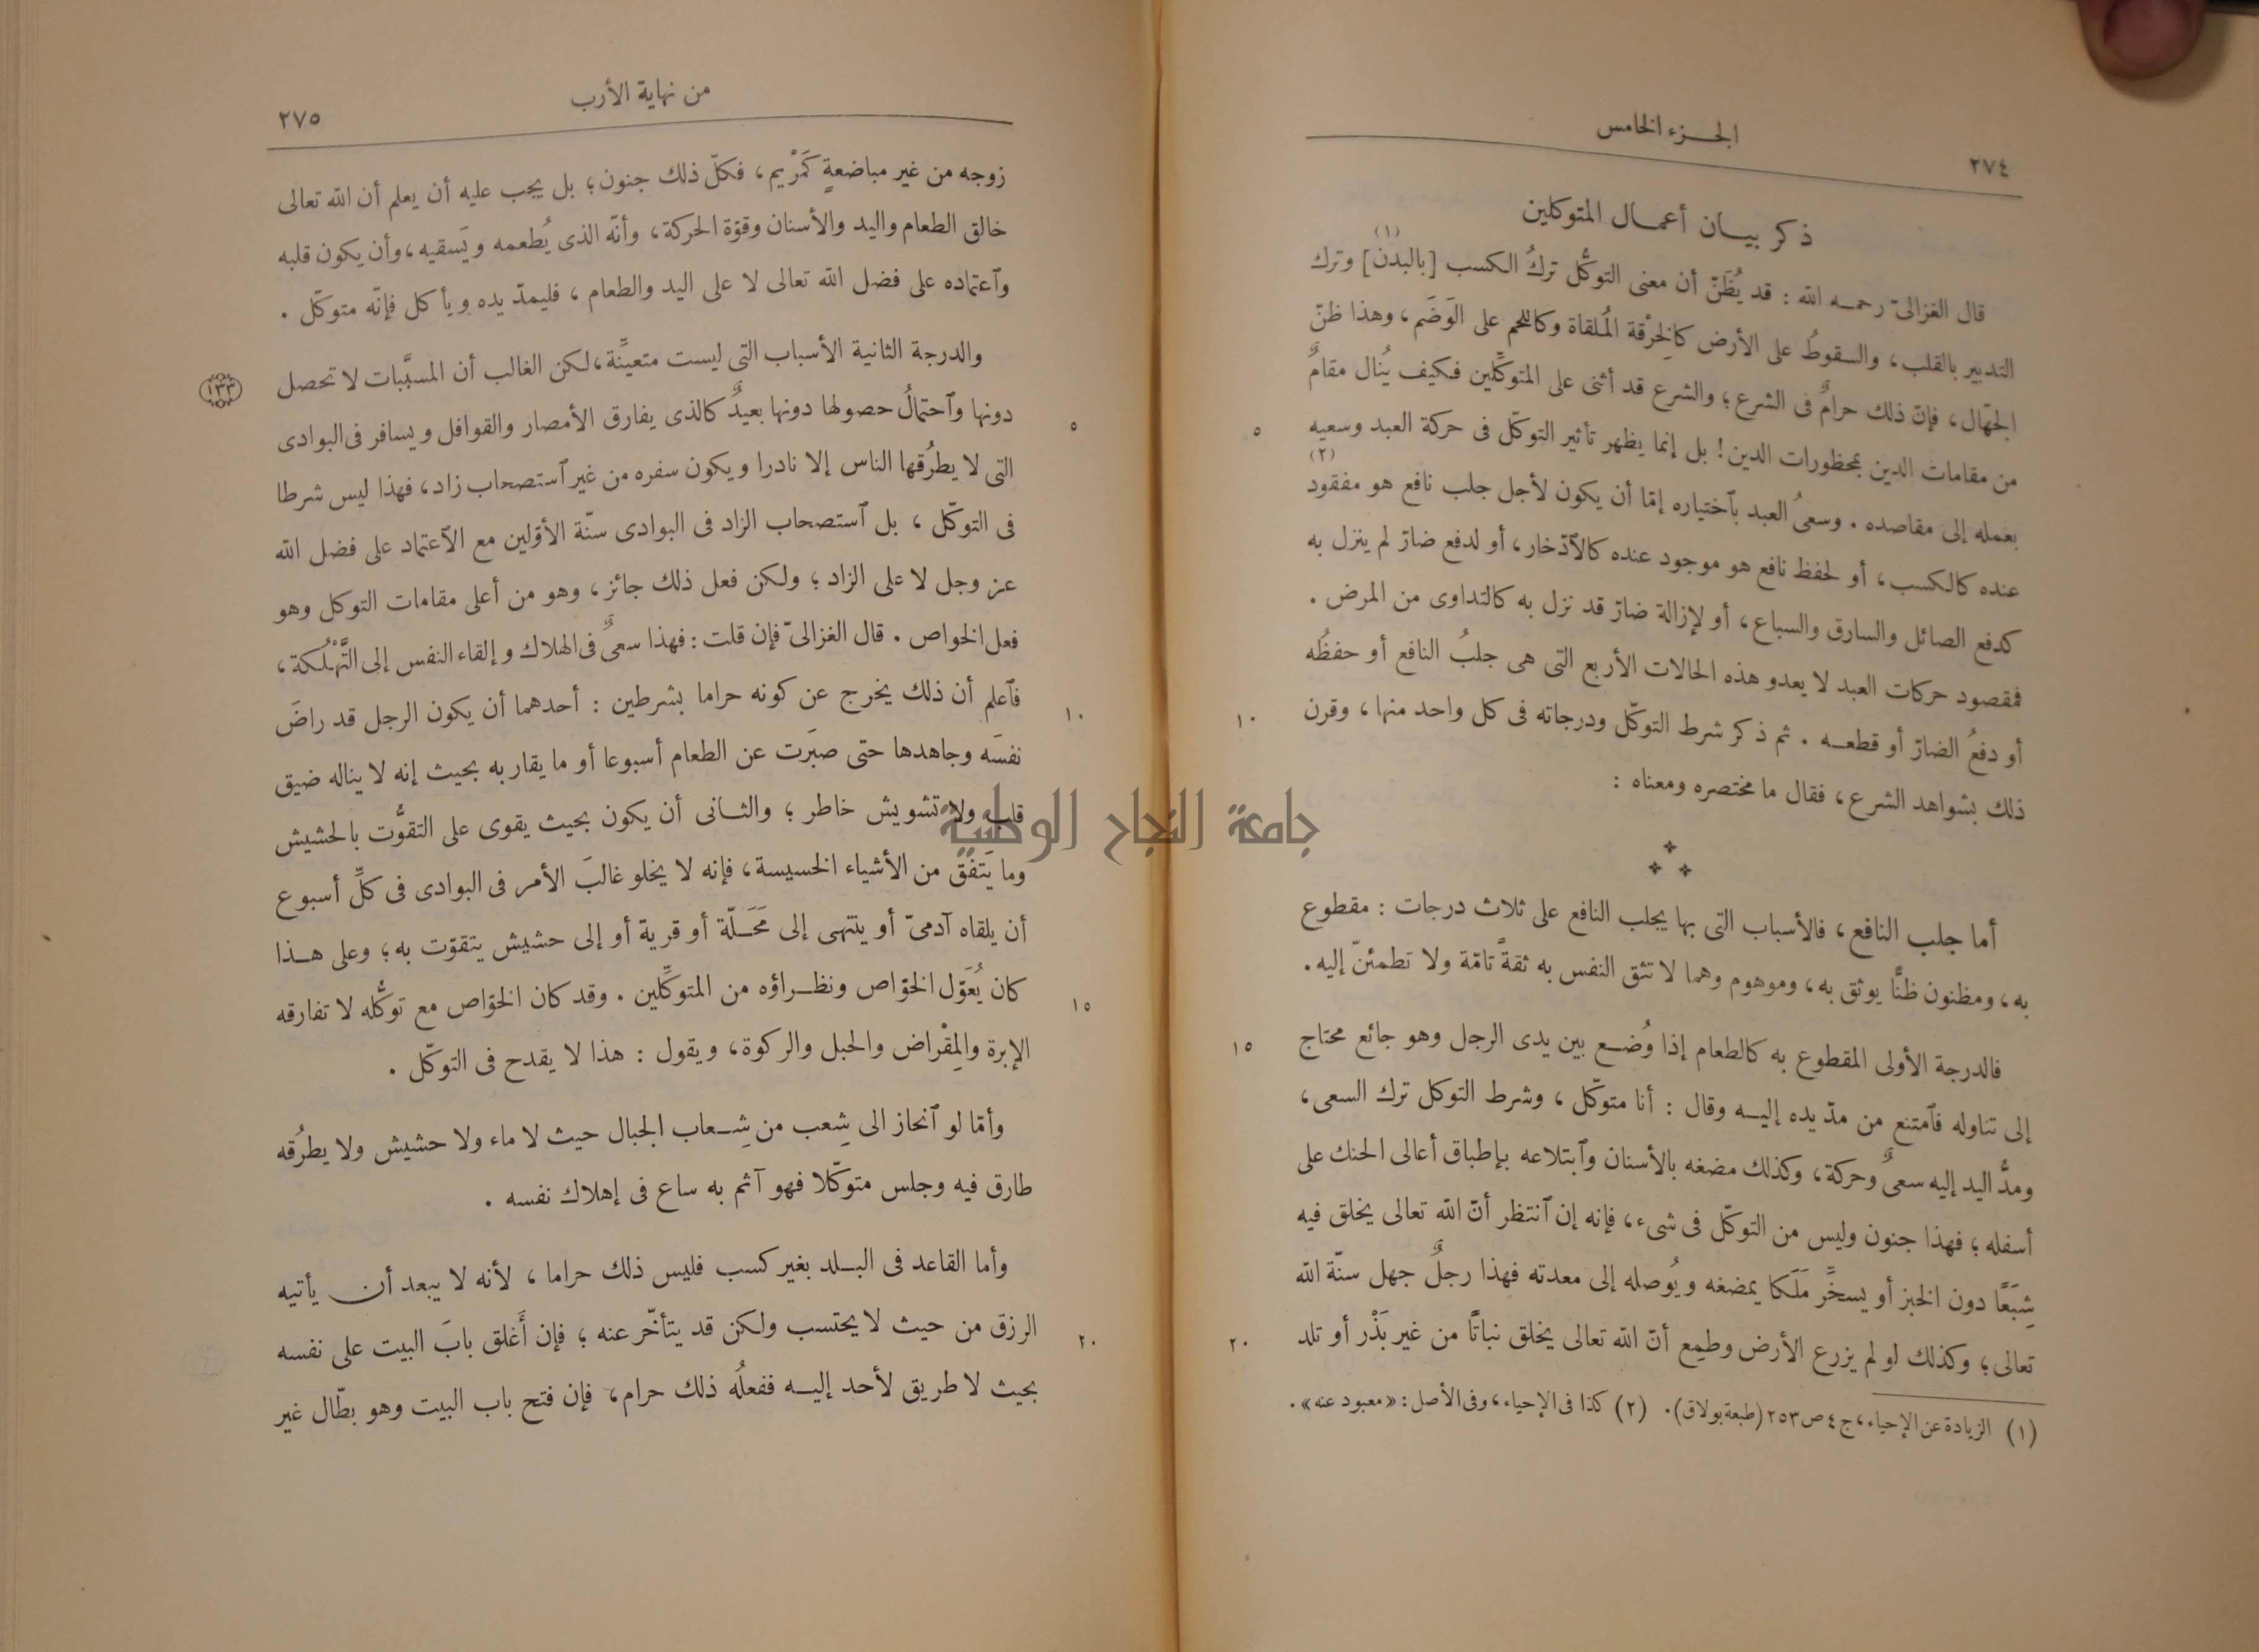 الجزء الخامس
٢٧٤
ذكر بيان أعمال المتوكلين
قال الغزالىّ رحمه الله : قد يُظَنّ أن معنى التوكُّل تركُ الكسب [بالبدن](١) وترك
التدبير بالقلب، والسقوطُ على الأرض كالخِرْقة المُلقاة وكاللحم على الوَضَم، وهذا ظنّ
الجهّال، فإنّ ذلك حرامٌ فى الشرع؛ والشرع قد أثنى على المتوكِّلين فكيف يُنال مقامٌ
من مقامات الدين بمحظورات الدين! بل إنما يظهر تأثير التوكّل فى حركة العبد وسعيه
٥
بعمله إلى مقاصده . وسعىُ العبد بآختياره إمّا أن يكون لأجل جلب نافع هو مفقود(٢)
عنده كالكسب، أو لحفظ نافع هو موجود عنده كالآدّخار، أو لدفع ضارّ لم ينزل به
كدفع الصائل والسارق والسباع، أو لإزالة ضارّ قد نزل به كالتداوى من المرض .
فمقصود حركات العبد لا يعدو هذه الحالات الأربع التى هى جلبُ النافع أو حفظُه
أو دفعُ الضارّ أو قطعه . ثم ذكر شرط التوكّل ودرجاته فى كل واحد منها، وقرن
١٠
ذلك بشواهد الشرع، فقال ما مختصره ومعناه :
أما جلب النافع، فالأسباب التى بها يجلب النافع على ثلاث درجات : مقطوع
به، ومظنون ظنًّا يوثق به، وموهوم وهما لا تثق النفس به ثقةً تامّة ولا تطمئنّ إليه.
فالدرجة الأولى المقطوع به كالطعام إذا وُضع بين يدى الرجل وهو جائع محتاج
١٥
إلى تناوله فآمتنع من مدّ يده إليه وقال : أنا متوكّل، وشرط التوكل ترك السعى،
ومدُّ اليد إليه سعىٌ وحركة، وكذلك مضغه بالأسنان وآبتلاعه بإطباق أعالى الحنك على
أسفله؛ فهذا جنون وليس من التوكّل فى شىء، فإنه إن آنتظر أنّ الله تعالى يخلق فيه
شِبَعًا دون الخبز أو يسخِّر مَلَكا يمضغه ويُوصله إلى معدته فهذا رجلٌ جهل سنّة الله
تعالى؛ وكذلك لو لم يزرع الأرض وطمِع أنّ الله تعالى يخلق نباتًا من غير بَذْر أو تلد
٢٠
(١) الزيادة عن الإحياء، ج ٤ ص ٢٥٣ (طبعة بولاق). (٢) كذا فى الإحياء، وفى الأصل : «معبود عنه».
من نهاية الأرب
٢٧٥
زوجه من غير مباضعةٍ كَمَرْيم، فكلّ ذلك جنون؛ بل يجب عليه أن يعلم أن الله تعالى
خالق الطعام واليد والأسنان وقوّة الحركة، وأنّه الذى يُطعمه ويَسقيه، وأن يكون قلبه
وآعتماده على فضل الله تعالى لا على اليد والطعام، فليمدّ يده ويأكل فإنّه متوكّل .
والدرجة الثانية الأسباب التى ليست متعيِّنة، لكن الغالب أن المسبَّبات لا تحصل
١٣٣
دونها وآحتمالُ حصولها دونها بعيدٌ كالذى يفارق الأمصار والقوافل ويسافر فى البوادى
٥
التى لا يطرُقها الناس إلا نادرا ويكون سفره من غير آستصحاب زاد، فهذا ليس شرطا
فى التوكّل، بل آستصحاب الزاد فى البوادى سنّة الأوّلين مع الآعتماد على فضل الله
عز وجل لا على الزاد؛ ولكن فعل ذلك جائز، وهو من أعلى مقامات التوكل وهو
فعل الخواص . قال الغزالىّ فإن قلت : فهذا سعىٌ فى الهلاك وإلقاء النفس إلى التَّهْلُكة،
فآعلم أن ذلك يخرج عن كونه حراما بشرطين : أحدهما أن يكون الرجل قد راضَ
١٠
نفسَه وجاهدها حتى صبَرت عن الطعام أسبوعا أو ما يقاربه بحيث إنه لا يناله ضيق
قلب ولا تشويش خاطر؛ والثانى أن يكون بحيث يقوى على التقوُّت بالحشيش
وما يَتفق من الأشياء الخسيسة، فإنه لا يخلو غالبَ الأمر فى البوادى فى كلّ أسبوع
أن يلقاه آدمىّ أو ينتهى إلى مَحَلّة أو قرية أو إلى حشيش يتقوّت به؛ وعلى هذا
كان يُعَوّل الخوّاص ونظراؤه من المتوكِّلين . وقد كان الخوّاص مع توكُّله لا تفارقه
١٥
الإبرة والمِقْراض والحبل والركوة، ويقول : هذا لا يقدح فى التوكّل .
وأمّا لو آنحاز الى شِعب من شِعاب الجبال حيث لا ماء ولا حشيش ولا يطرُقه
طارق فيه وجلس متوكّلا فهو آثم به ساع فى إهلاك نفسه .
وأما القاعد فى البلد بغير كسب فليس ذلك حراما، لأنه لا يبعد أن يأتيه
الرزق من حيث لا يحتسب ولكن قد يتأخّر عنه؛ فإن أَغلق بابَ البيت على نفسه
٢٠
بحيث لا طريق لأحد إليه ففعلُه ذلك حرام، فإن فتح باب البيت وهو بطّال غير
جامعة النجاح الوطنية